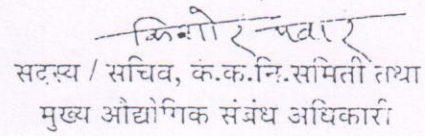 किशोर पवार
सदस्य / सचिव, कं.क.नि.समिती तथा
मुख्य औद्योगिक संबंध अधिकारी